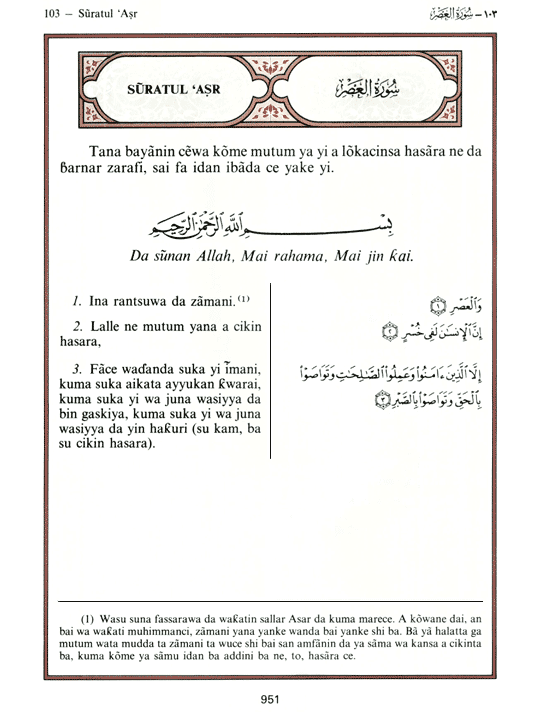 103 — Sũratul ‘Aṣr
١٠٣ – سُورَةُ العَصْرِ
SŨRATUL ‘AṢR
سُورَةُ العَصْرِ
Tana bayãnin cẽwa kõme mutum ya yi a lõkacinsa hasãra ne da
ɓarnar zarafi, sai fa idan ibãda ce yake yi.
بِسْـــــمِ اللَّهِ الرَّحْمَٰنِ الرَّحِيمِ
Da sũnan Allah, Mai rahama, Mai jin ƙai.
1. Ina rantsuwa da zãmani.(1)
2. Lalle ne mutum yana a cikin
hasara,
3. Fãce waɗanda suka yi ĩmani,
kuma suka aikata ayyukan ƙwarai,
kuma suka yi wa juna wasiyya da
bin gaskiya, kuma suka yi wa juna
wasiyya da yin haƙuri (su kam, ba
su cikin hasara).
وَالْعَصْرِ ١
إِنَّ الْإِنسَانَ لَفِي خُسْرٍ ٢
إِلَّا الَّذِينَ ءَامَنُوا وَعَمِلُوا الصَّالِحَاتِ وَتَوَاصَوْا
بِالْحَقِّ وَتَوَاصَوْا بِالصَّبْرِ ٣
(1) Wasu suna fassarawa da waƙatin sallar Asar da kuma marece. A kõwane dai, an
bai wa waƙati muhimmanci, zãmani yana yanke wanda bai yanke shi ba. Bã yã halatta ga
mutum wata mudda ta zãmani ta wuce shi bai san amfãnin da ya sãma wa kansa a cikinta
ba, kuma kõme ya sãmu idan ba addini ba ne, to, hasãra ce.
951